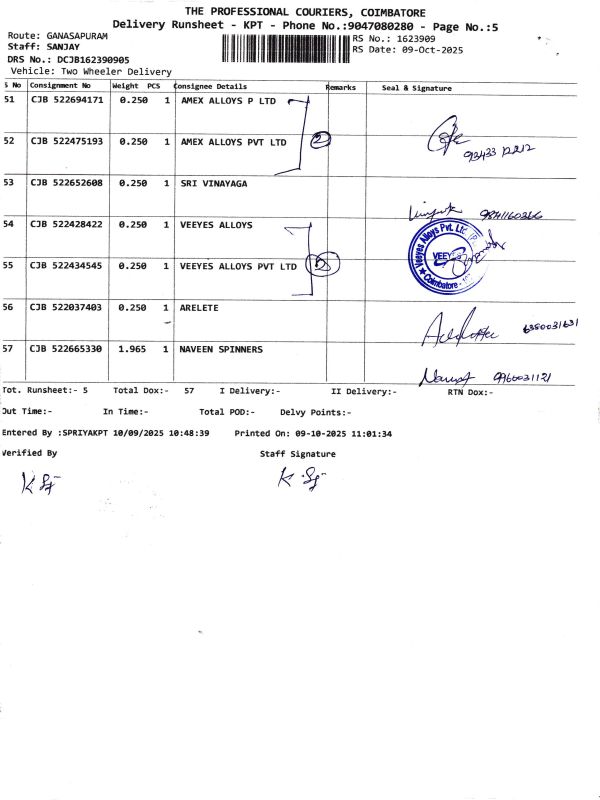 THE PROFESSIONAL COURIERS, COIMBATORE
Delivery Runsheet - KPT - Phone No.:9047080280 - Page No.:5
Route: GANASAPURAM
RS No.: 1623909
Staff: SANJAY
RS Date: 09-Oct-2025
DRS No.: DCJB162390905
Vehicle: Two Wheeler Delivery
S No Consignment No Weight PCS Consignee Details Remarks Seal & Signature
51 CJB 522694171 0.250 1 AMEX ALLOYS P LTD
52 CJB 522475193 0.250 1 AMEX ALLOYS PVT LTD 2
53 CJB 522652608 0.250 1 SRI VINAYAGA
54 CJB 522428422 0.250 1 VEEYES ALLOYS
Veeyes Alloys Pvt. Ltd
VEEYES
Coimbatore
55 CJB 522434545 0.250 1 VEEYES ALLOYS PVT LTD
56 CJB 522037403 0.250 1 ARELETE 6380031631
57 CJB 522665330 1.965 1 NAVEEN SPINNERS
Tot. Runsheet:- 5 Total Dox:- 57 I Delivery:- II Delivery:- RTN Dox:-
Out Time:- In Time:- Total POD:- Delvy Points:-
Entered By :SPRIYAKPT 10/09/2025 10:48:39 Printed On: 09-10-2025 11:01:34
Verified By Staff Signature